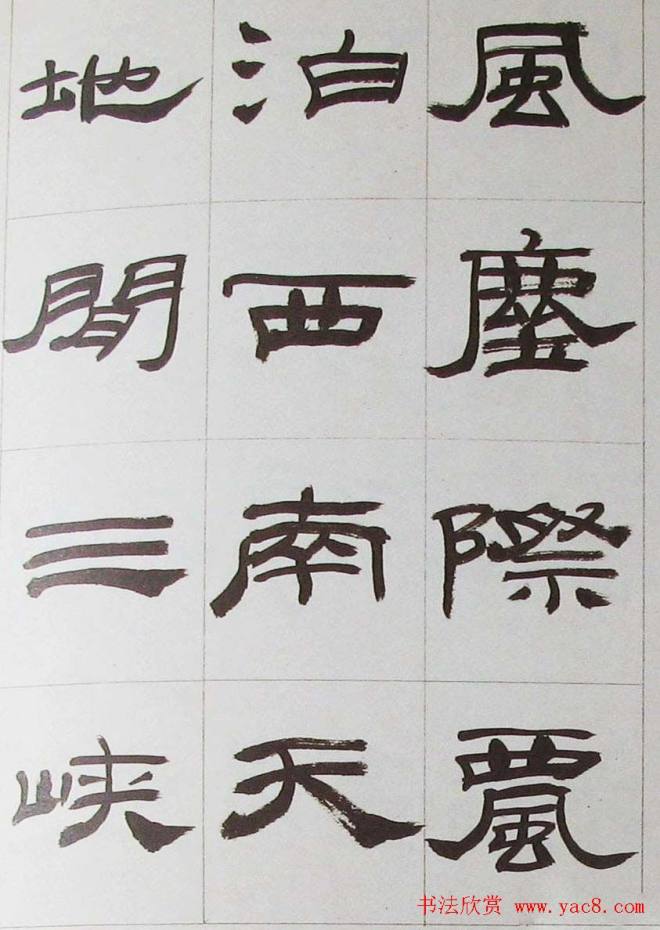 風塵際飄
泊西南天
地間三峡
书法欣赏 www.yac8.com